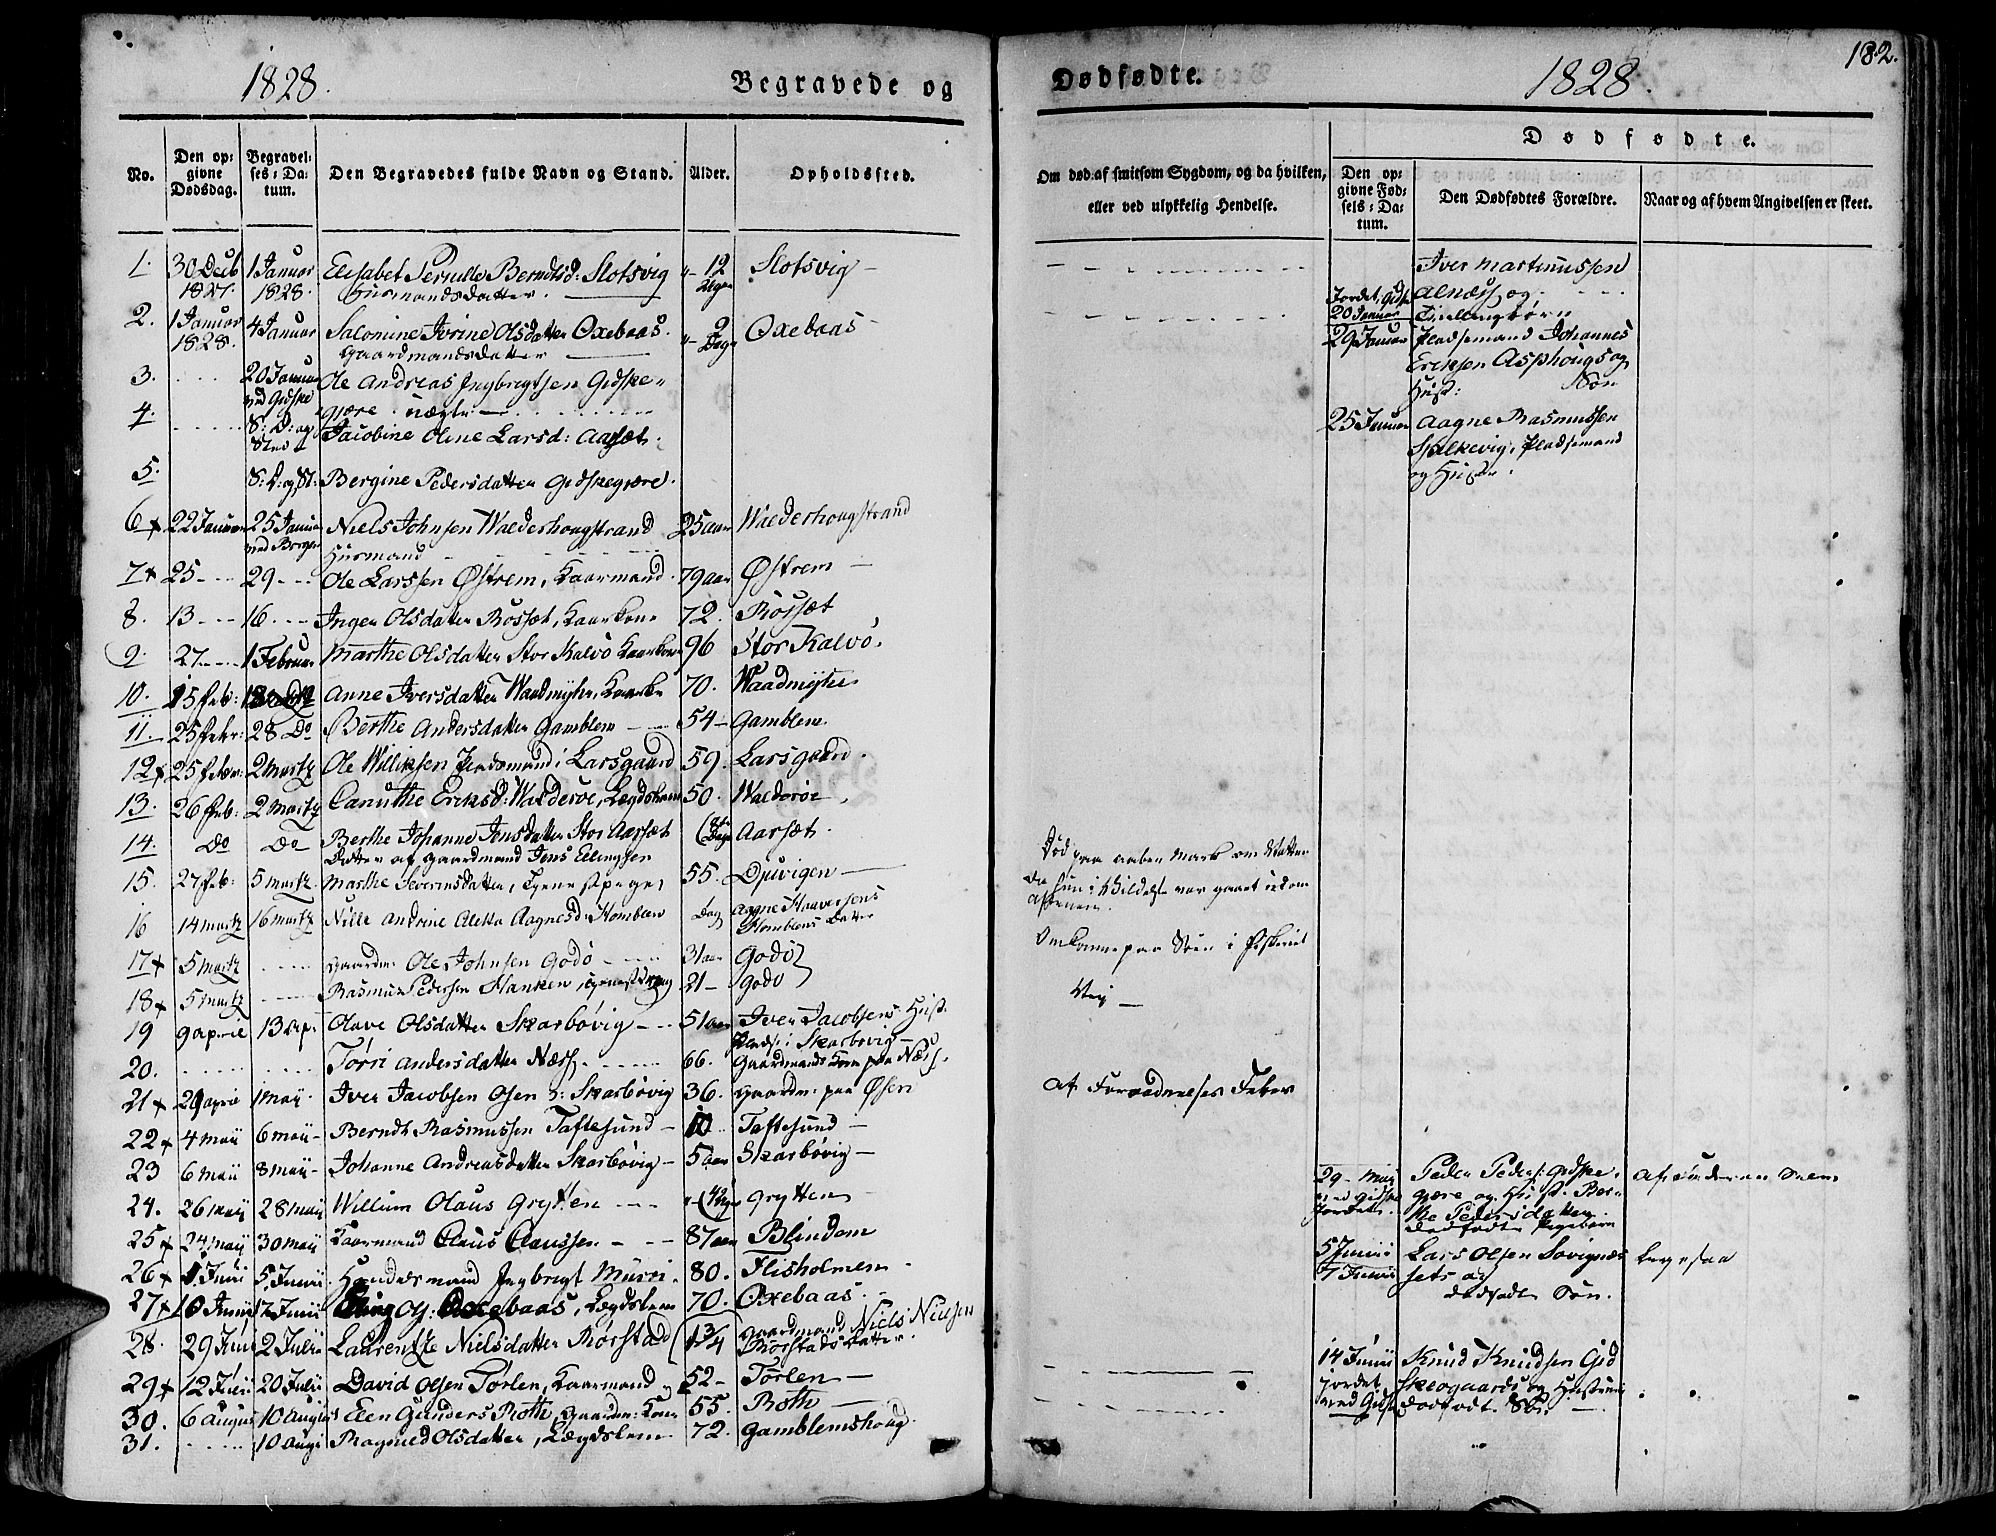 1828.
Begravede og
No.
Den opgivne Dødsdag.
Begravelses-Datum.
Den Begravedes fulde Navn og Stand.
Alder.
Opholdssted.
1. 30 Decb 1827. 1 Januar 1828. Elisabet Pernille Berndtsd: Slotsvig 12 Uger Slotsvig
Huusmandsdatter.
2. 1 Januar 1828. 4 Januar Salomine Iverine Olsdatter Oxebaas. 2 Dage Oxebaas
Gaardmandsdatter
3. 20 Januar ved Gidske Ole Andreas Ingbrigtsen Gidske-
gjære. uægte
4. S: D: og Sted Jacobine Oline Larsd: Aarsæt.
5. S: D: og St: Bergine Pedersdatter Gidskegjære.
6 22 Januar 25 Januar ved Borgen Niels Johnsen Walderhougstrand 25 aar Walderhougstrand
Huusmand
7 25 29 Ole Larssen Østrem, Kaarmand. 79 aar Østrem
8. 13 16. Inger Olsdatter Røssæt, Kaarkone 72. Røssæt
9. 27 1 Februar Marthe Olsdatter Stor Kalvø Kaarkone 96 Stor Kalvø.
10. 15 Feb: Anne Iversdatter Waadmyhr, Kaarko 70. Waadmyhr
11. 25 Febr: 28 Do Berthe Andersdatter Gamblem 54 Gamblem.
12 25 Febr: 2 Martz Ole Williksen Pladsmand i Larsgaard 59. Larsgaard.
13. 26 Feb: 2 Martz Canuthe Eriksd: Walderøe, Lægdslem 50. Walderøe,
14. Do Do Berthe Johanne Jensdatter Stor Aarsæt 8te Dage Aarsæt.
Datter af Gaardmand Jens Ellingsen
15. 27 Feb: 5 Martz. Marthe Severinsdatter, Tjenestpige, 55. Djuvigen
16 14 Martz 16 Martz Nille Andrine Oletta Aagnesd: Homblen Dag Aagne Haaversens
Homblens Datter
17 5 Martz Gaardm: Ole Johnsen Godø 31 aar Godø
18 5 Martz Rasmus Pedersen Hanken, Tjenestdreng 21 Godø
19 9 Aprie 13 Apr: Olave Olsdatter Skarbøvig 51 aar Iver Jacobsens Hust.
Plads i Skarbøvig
20. Torri Andersdatter Næss. 66. Gaardmands Kone paa Næss.
21 29 Aprie 1 May. Iver Jacobsen Osen i Skarbøvig 36. Gaardm: paa Øsen
22 4 Maii 6 Maii Berndt Rasmussen Taftesund 10 Taftesund
23 6 Maii 8 Maii Johanne Andreasdatter Skarbøvig 5 aar Skarbøvig
24. 26 Maij 28 Maij Willum Olaus Grytten Grytten
25 24 Maij 30 Maij Kaarmand Claus Claussen 87 aar Blindem
26 1 Junii 5 Junii Handelsmand Ingbrigt Murri. 80. Flisholmen
27 10 Junii 12 Junii Oxebaas, Lægdslem 70. Oxebaas.
28. 29 Junii 2 Julii Laurentze Nielsdatter Rørstad 1 3/4 Gaardmand Niels Nielsen
Rørstads Datter.
29 12 Julii 20 Julii David Olsen Torlen, Kaarmand 52 Torlen
30. 6 August 10 August Elen Gunders Roth, Gaardm: Kone 55. Roth
31. 10 Augs Ragnild Olsdatter, Lægdslem 72. Gamblemshoug.
182.
Dødfødte.
1828.
Om død af smitsom Sygdom, og da hvilken,
eller ved ulykkelig Hendelse.
Dødfødte.
Den opgivne Fødsels-Datum.
Den Dødfødtes Forældre.
Naar og af hvem Angivelsen er skeet.
Jordet, Gidske 20 Januar Iver Martinussen
Alnæss og
Tvillingbørn
29 Januar Pladsemand Johannes
Eriksen Asphougs og
Hust: Søn
25 Januar Aagne Rasmussen
Spilkevig, Pladsemand
og Hustr.
Død paa aaben Mark om Natten
da hun i Vildelse var gaaet ud om
Aftenen.
Omkomne paa Søen i Fiskeriet
Af Foraadnelses Feber
29 May ved Gidske Jordet. Peder Peders: Gidske-
gjære og Hust. Ber-
the Pedersdatter
Dødfødte Pigebarn
5 Junii 7 Junii Lars Olsen Sovignæs
sets og
dødfødte Søn.
Ligesaa
14 Junii jordet ved Gidske Knud Knudsen Gid
skeogaards og Hustrues
Dødfødt. Søn